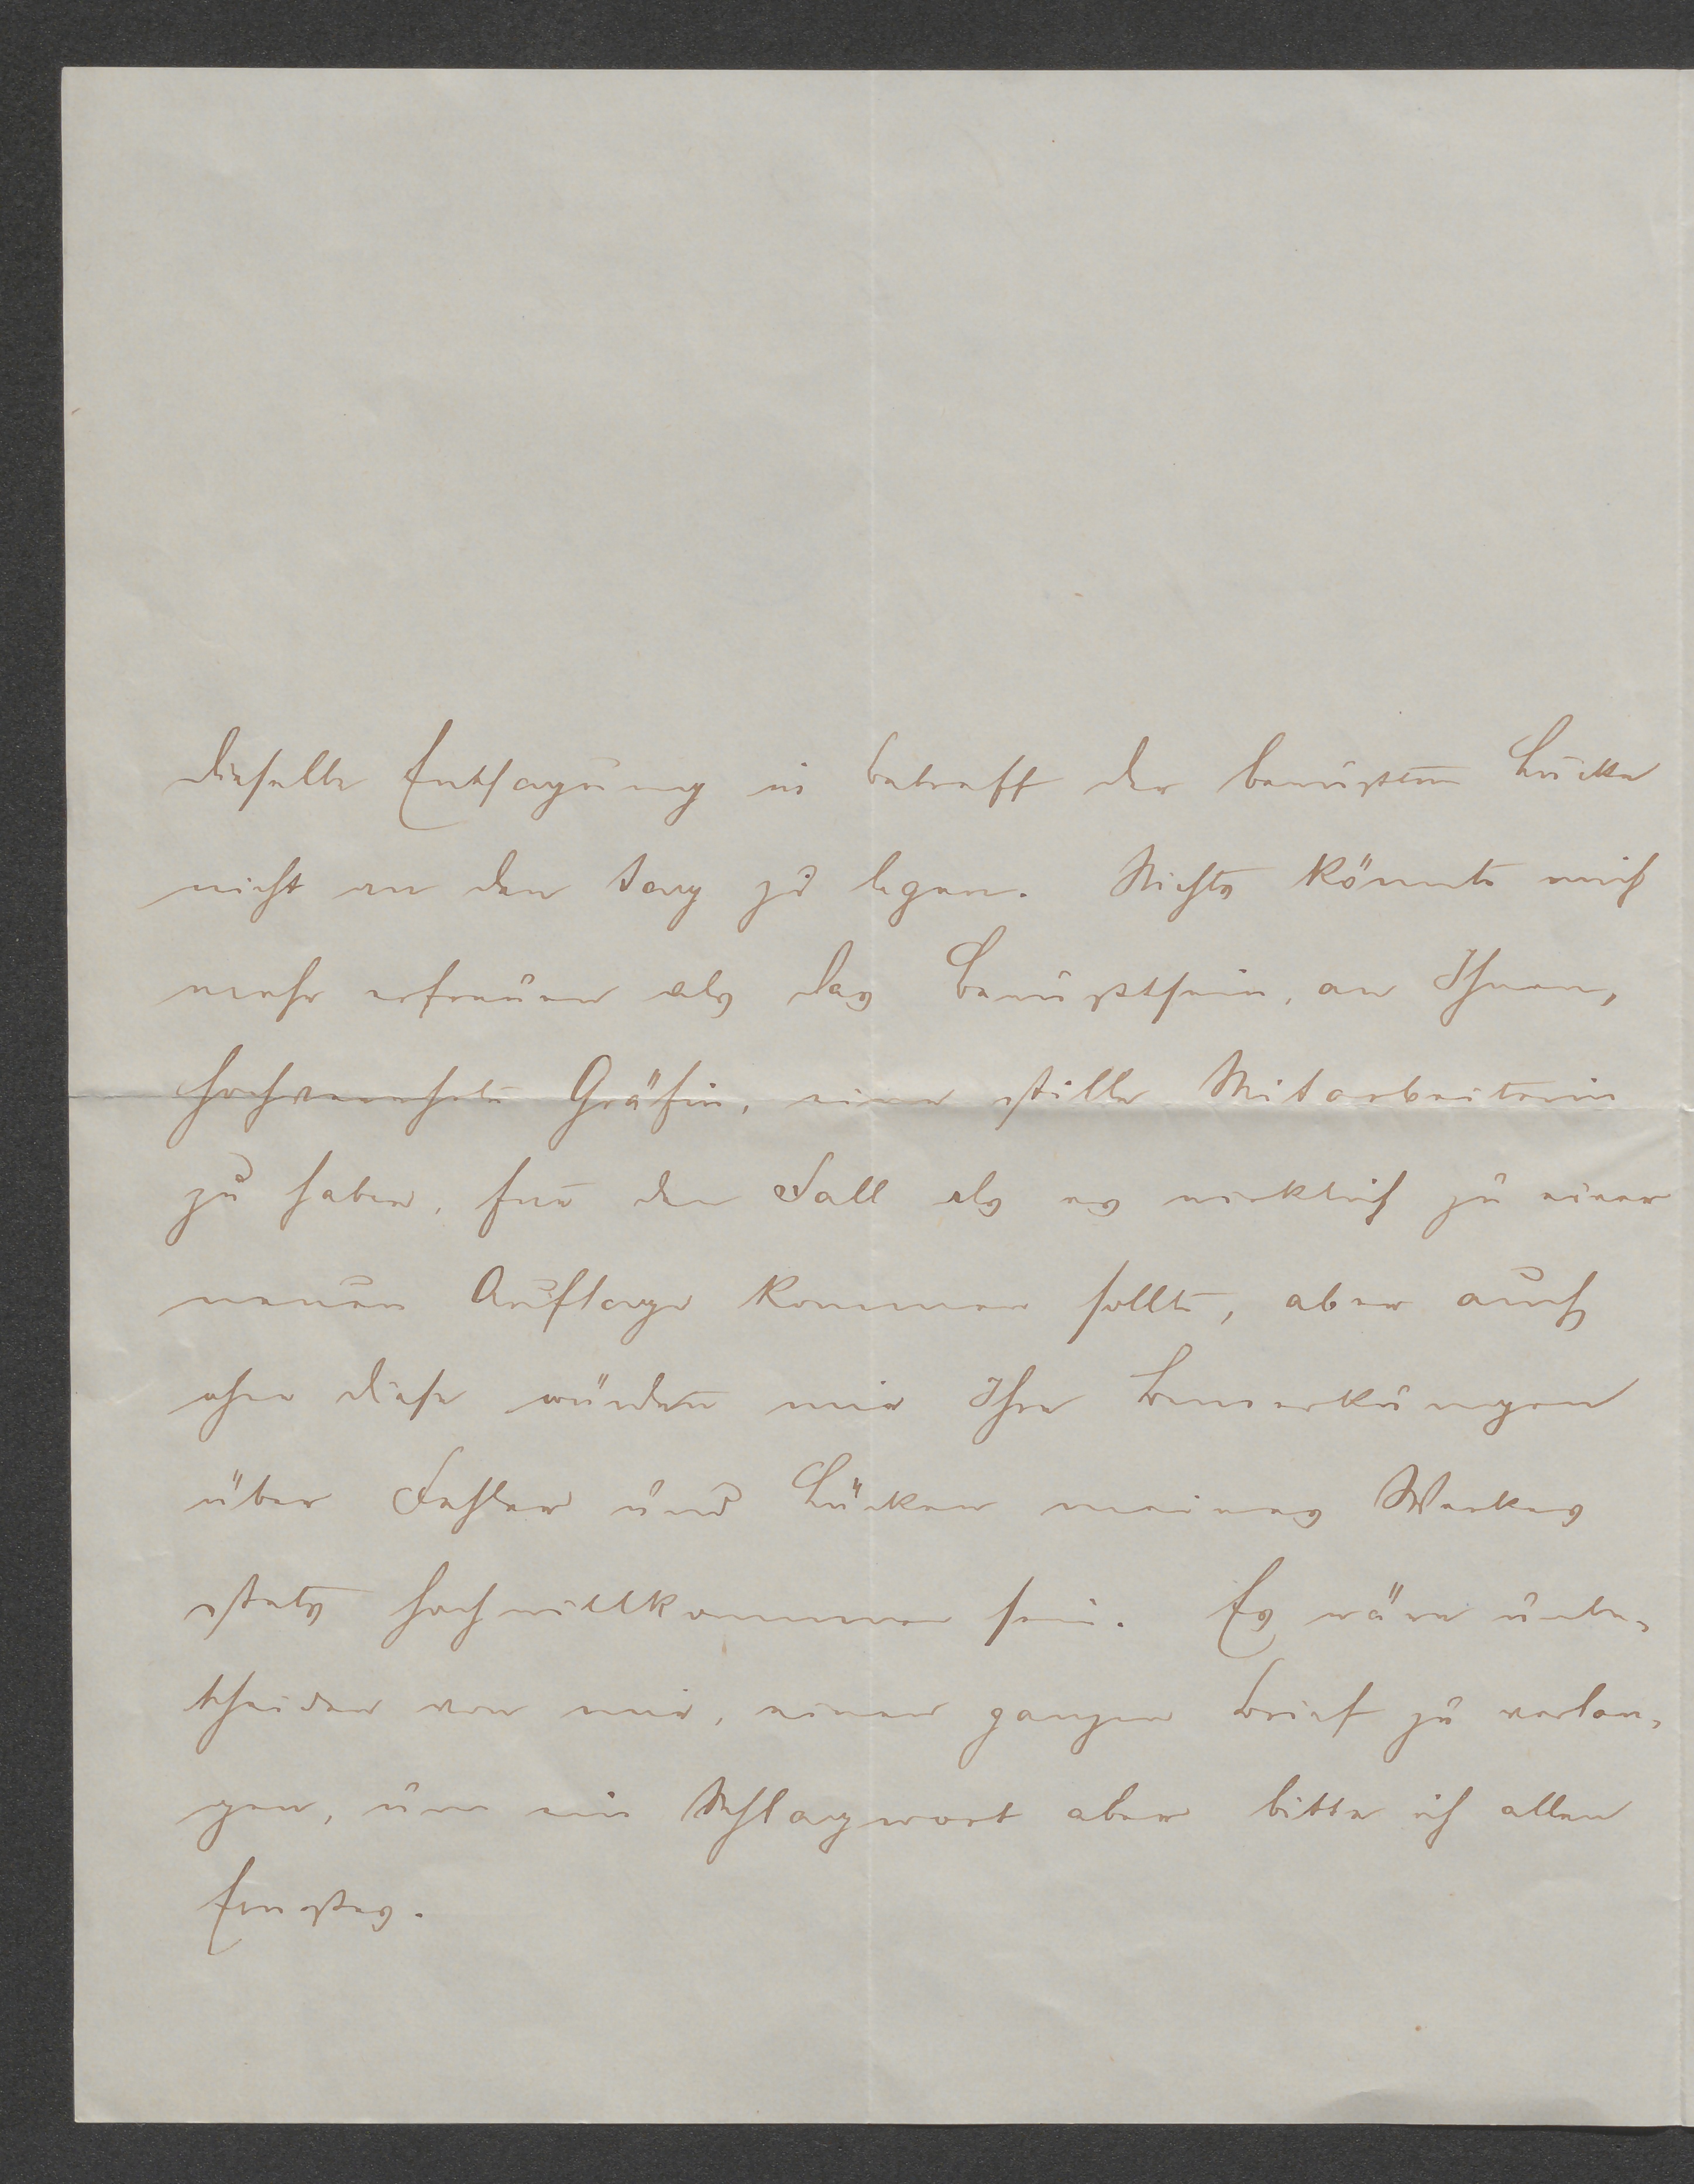 dieselbe Entsagung in betreff der bewußten Lücke
nicht an den Tag zu legen. Nichts könnte mich
mehr erfreuen als das Bewußtsein, an Ihnen,
hochverehrte Gräfin, eine stille Mitarbeiterin
zu haben, für den Fall als es wirklich zu einer
neuen Auflage kommen sollte, aber auch
ohne diese würden mir Ihre Bemerkungen
über Fehler und Lücken meines Werkes
stets hochwillkommen sein. Es wäre unbe-
scheiden von mir, einen ganzen Brief zu verlan-
gen, um ein Schlagwort aber bitte ich allen
Ernstes.